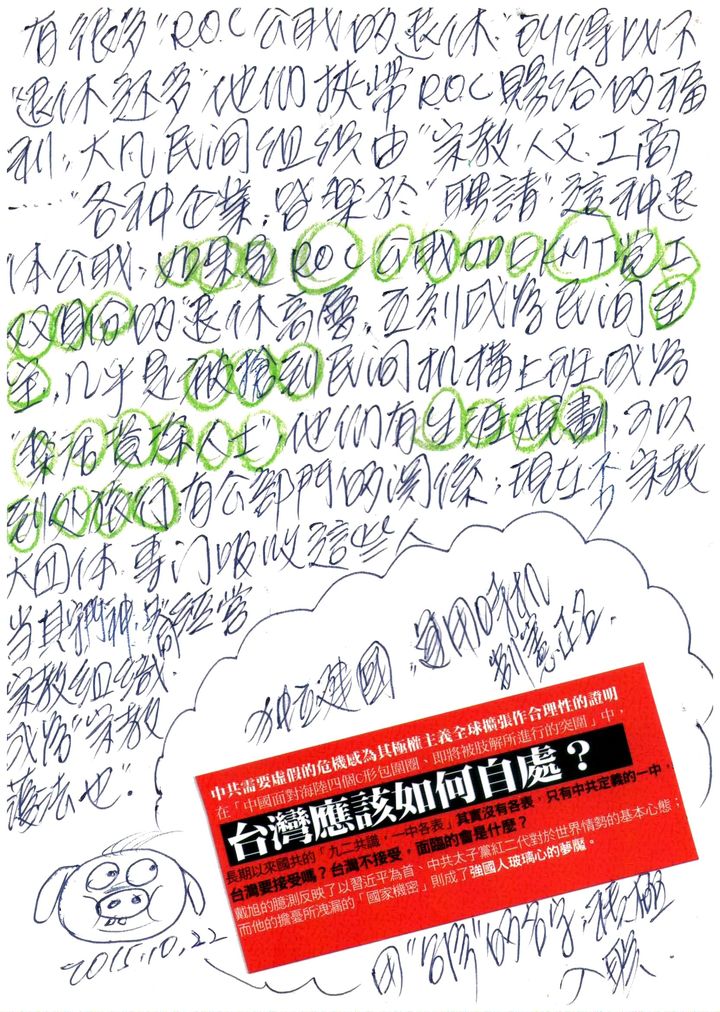 有很多"ROC公职的退休"的得以不
"退休还多"他们挾帶ROC賜給的福
利,大凡民间组织由"宗教.人文.工商
……"各种企業,皆樂於"聘請"這种退
休公职,如果是ROC公职加KMT党工
双身份的退休高層,立刻成为民间至
宝,几乎是被搶到民间机構上班成为
他们有生涯規劃,可以
到处旅行,有公部門的関係;現在 宗教
大团体專门吸收這些人
宗教組織.
成为"宗教
護法也".
独立建國,運用時机
劉憲
中共需要虛假的危機感為其極權主義全球擴張作合理性的證明
在「中國面對海陸四個C形包圍圈、即將被肢解所進行的突圍」中,
台灣應該如何自處?
長期以來國共的「九二共識,一中各表」其實沒有各表,只有中共定義的一中,
台灣要接受嗎?台灣不接受,面臨的會是什麼?
戴旭的臆測反映了以習近平為首、中共太子黨紅二代對於世界情勢的基本心態;
而他的擔憂所洩漏的「國家機密」則成了強國人玻璃心的夢魘。
2015.10.22
用"台湾"的名字,積極
入联.